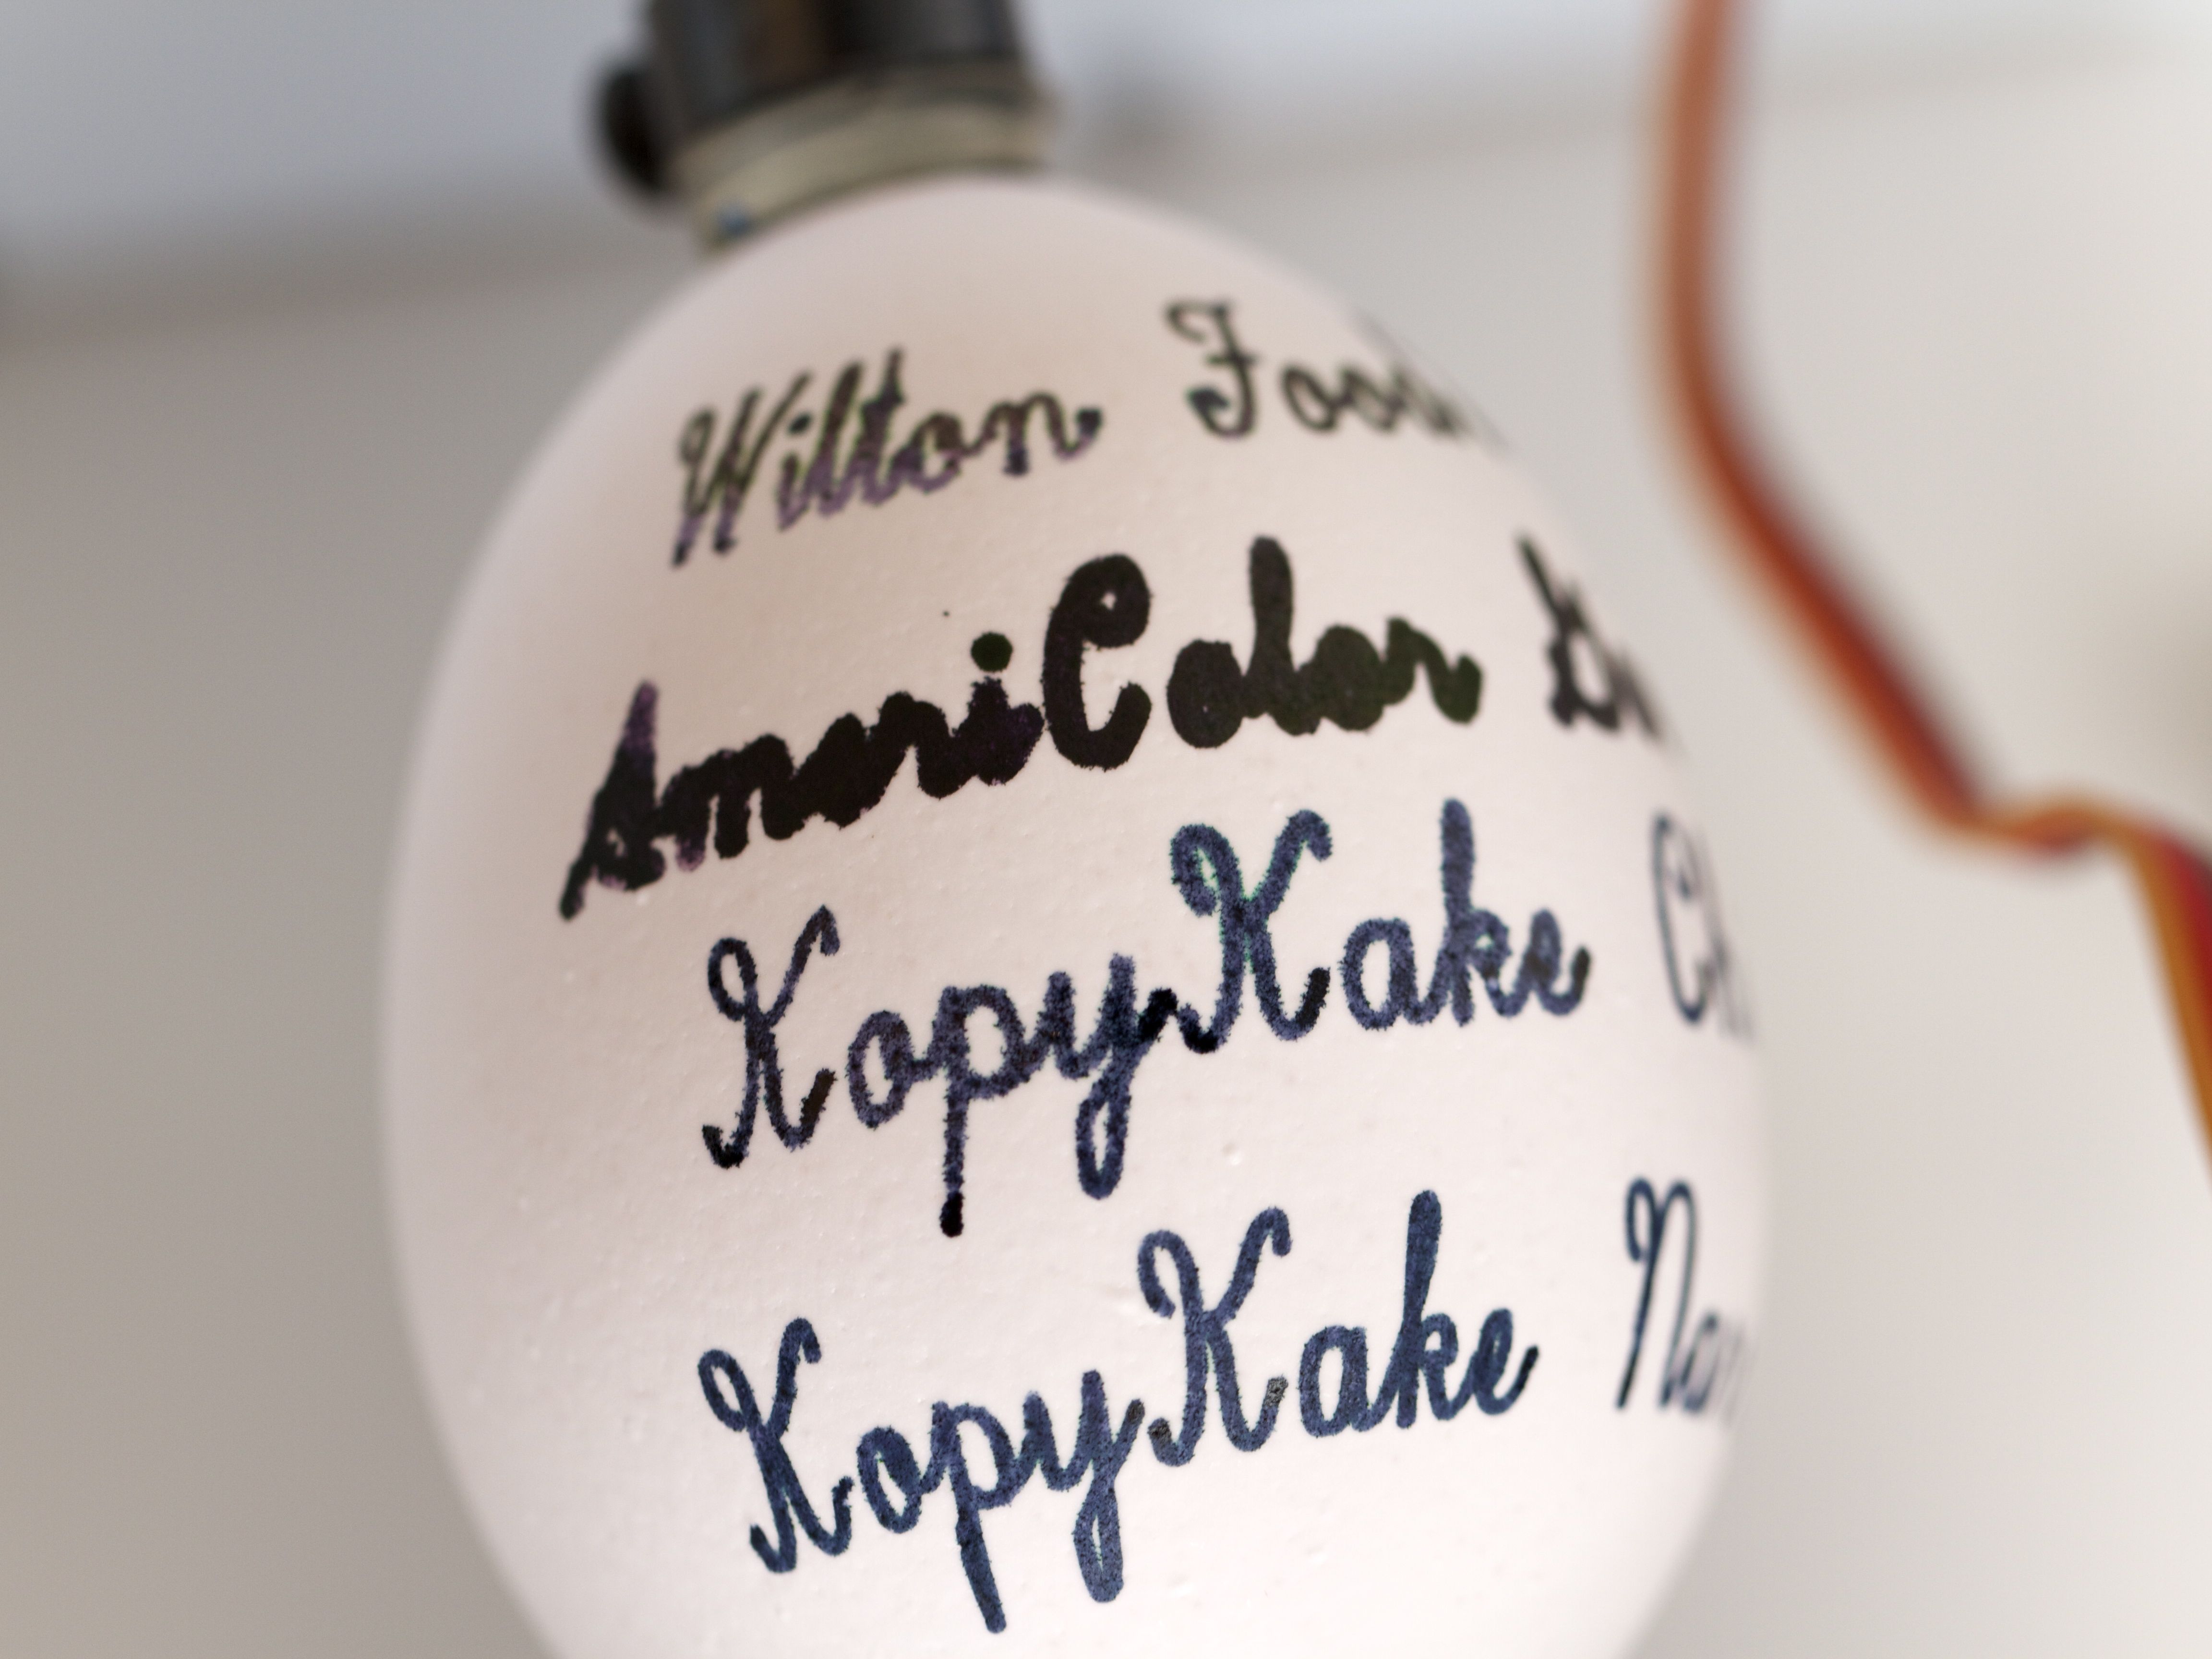 Wilton Food
AmeriColor
KopyKake
KopyKake